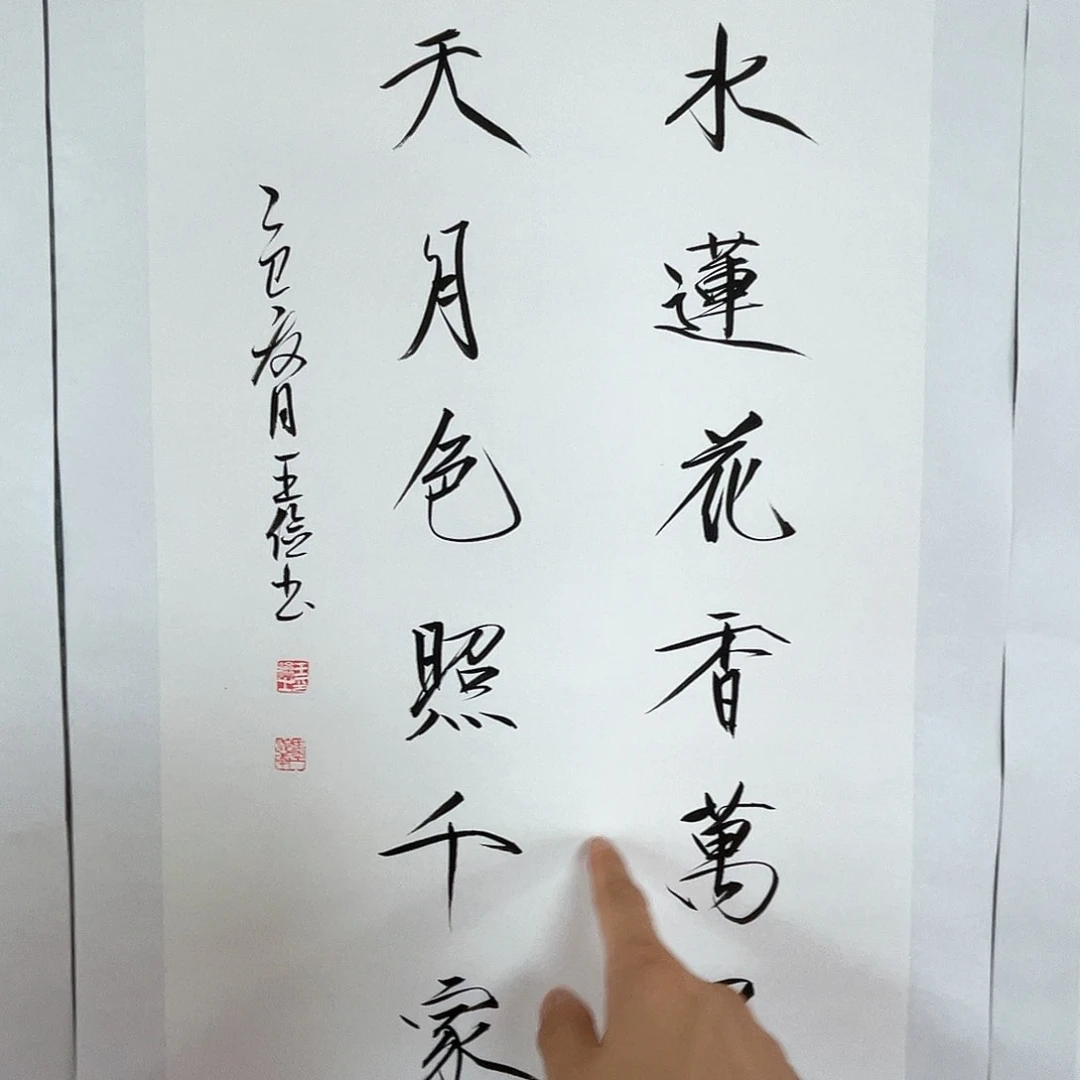 水蓮花香萬
天月色照千家
乙巳夏月王儉书